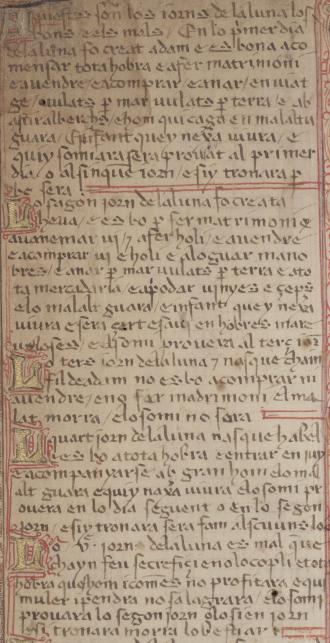 Aquests son los iorns de la luna los
bons e els mals / En lo primer dia
de la luna fo creat adam e es bona a co
mensar tota hobra e a fer matrimoni
e a vendre / e a comprar / e anar / en viat
ge / vulats per mar vulats per terra / e ab
hom qui caga en malaltia
guara / Enfant que y nexa viura / e
quiy somiara sera prouat al primer
dia / o al sinque iorn / e siy tronara
be sera
Lo sagon iorn de la luna fo creata
heva / e es bo per fer matrimoni e
a vi / e a fer holi / e a vendre
e a comprar vi e holi e a loguar mano
bres / e anar per mar vulats per terra e a to
ta mercadaria / e a podar vinyes e seps
e lo malalt guara / e infant que y nexa
viura e sera cert e saui en hobres mara
uoloses / e el somni prouera al terç iorn
Lo ters iorn de la luna nasque cham
fil de adam no es bo a comprar ni
a vendre / e no fer madrimoni el ma
lat morra / e lo somi no sera
quart iorn de la luna nasque habel
e es bo a tota hobra e entrar en
e acompanyarse ab gran hom e lo mal
alt guara e qui y naxa viura e lo somi pr
ouera en lo dia seguent o en lo segon
iorn / e siy tronara sera fam alscuns lo
Lo .V. iorn de la luna es mal que
chayn feu secrefici e no lo copli e tota
hobra que hom comes no profitara e qui
muler i pendra no sa lagrara / e lo somi
prouara lo segon iorn o lo sien iorn
si tronara morra lo bestiar